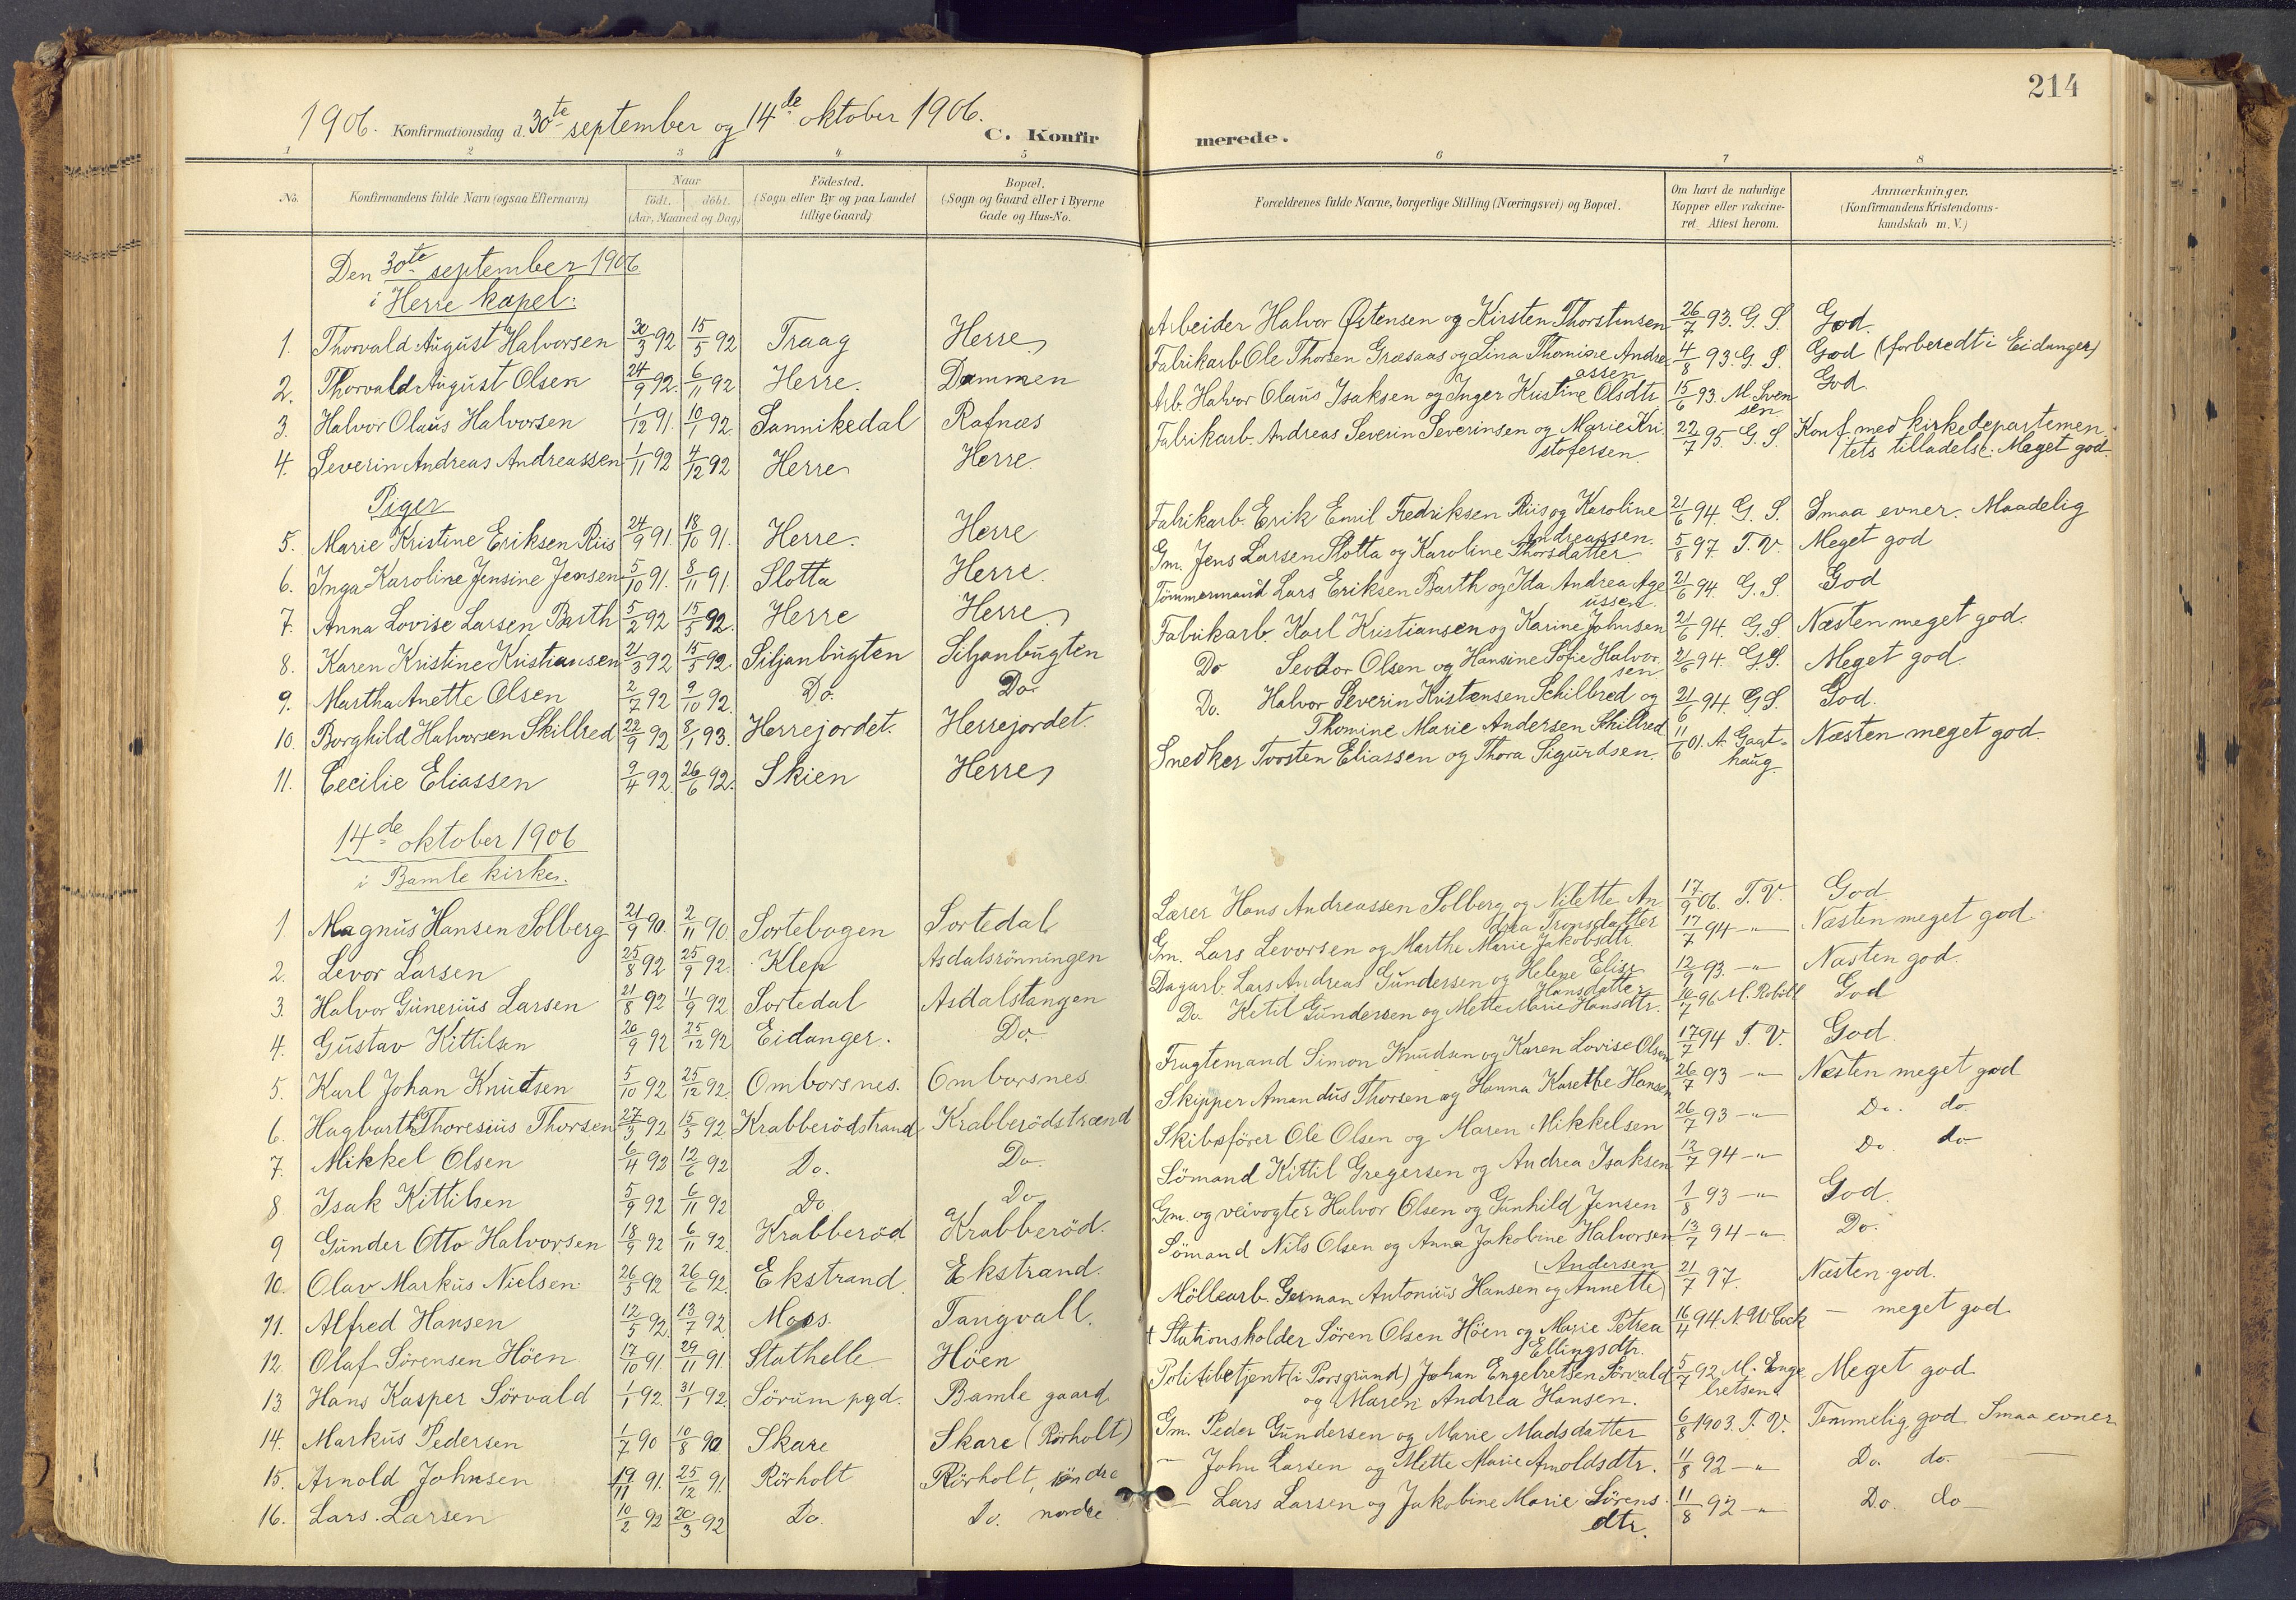 214
1906. Konfirmationsdag d. 30te september og 14de oktober 1906.
C. Konfirmerede.
1 2 3 4 5 6 7 8
No. Konfirmandens fulde Navn (ogsaa Efternavn) Naar født. døbt. (Aar, Maaned og Dag) Fødested. (Sogn eller By og paa Landet tillige Gaard) Bopæl. (Sogn og Gaard eller i Byerne Gade og Hus-No. Forældrenes fulde Navne, borgerlige Stilling (Næringsvei) og Bopæl. Om havt de naturlige Kopper eller vakcineret. Attest herom. Anmærkninger. (Konfirmandens Kristendomskundskab m. V.)
Den 30te september 1906
i Herre kapel:
1. Thorvald August Halvorsen 30/3 92 15/5 92 Traag Herre Arbeider Halvor Østensen og Kirsten Thorstensen 26/7 93. G. S. God.
2. Thorvald August Olsen 24/9 92. 6/11 92 Herre. Dammen Fabrikarb Ole Thorsen Græsaas og Lina Thomine Andreassen 4/8 93. G. S. God (forberedt i Eidanger)
3. Halvor Olaus Halvorsen 1/12 91. 10/1 92 Sannikedal Rafnæs Arb. Halvor Olaus Isaksen og Inger Kristine Olsdtr 15/6 93. M. Svensen God.
4. Severin Andreas Andreassen 1/11 92 4/12 92 Herre Herre. Fabrikarb. Andreas Severin Severinsen og Marie Kristofersen. 22/7 95 G. S. Konf. med kirkedepartementets tilladelse. Meget god.
Piger
5. Marie Kristine Eriksen Riis 24/9 91. 18/10 91. Herre. Herre Fabrikarb. Erik Emil Fredriksen Riis og Karoline Andreassen. 21/6 94. G. S. Smaa evner. Maadelig
6. Inga Karoline Jensine Jensen 5/10 91. 8/11 91 Slotta Herre. Gm. Jens Larsen Slotta og Karoline Thorsdatter 5/8 97 T. V. Meget god
7. Anna Lovise Larsen Barth 5/2 92 15/5 92. Herre Herre Tömmermand Lars Eriksen Barth og Ida Andrea Ageussen. 21/6 94. G. S. God
8. Karen Kristine Kristiansen 21/3 92 15/5 92. Siljanbugten Siljanbugten Fabrikarb. Karl Kristiansen og Karine Johnsen 21/6 94. G. S. Næsten meget god.
9. Martha Anette Olsen 2/7 92 9/10 92. Do. Do. Do Olsen og Hansine Sofie Halvorsen 21/6 94. G. S. Meget god.
10. Borghild Halvorsen Skilbred 22/9 92 8/1 93. Herrejordet. Herrejordet. Do. Halvor Severin Kristensen Schilbred og Thomine Marie Andersen Skilbred 21/6 94. G S. God.
11. Cecilie Eliassen 9/4 92. 26/6 92. Skien Herre Snedker Torsten Eliassen og Thora Sigurdsen. 11/6 01. A. Gaathaug. Næsten meget god.
14de oktober 1906
i Bamle kirke.
1 Magnus Hansen Solberg 21/9 90. 2/11 90. Sortebogen Sortedal Lærer Hans Andreassen Solberg og Nilette Andrea Tronsdatter 17/9 06. T. V. God
2. Levor Larsen 25/8 92 25/9 92. Klep Asdalsrönningen Gm. Lars Levorsen og Marthe Marie Jakobsdtr. 17/7 94 -"- Næsten meget god
3. Halvor Gunerius Larsen 21/8 92 11/9 92 Sortedal Asdalstangen Dagarb. Lars Andreas Gundersen og Helene Elise Hansdatter 12/9 93. -"- Næsten god.
4. Gustav Kittilsen 26/9 92 25/12 92 Eidanger. Do. Do. Ketil Gundersen og Mette Marie Hansdtr. 10/7 96 M. God
5. Karl Johan Knudsen 5/10 92 25/12 92. Omborsnes. Omborsnes Fragtemand Simon Knudsen og Karen Lovise Olsen 17/7 94 T. V. God.
6. Hagbarth Thoresius Thorsen 27/3 92 15/5 92 Krabberödstrand Krabberödstrand Skipper Amandus Thorsen og Hanna Karethe Hansen 26/7 93 -"- Næsten meget god
7. Mikkel Olsen 6/4 92 12/6 92 Do. Do. Skibsförer Ole Olsen og Maren Mikkelsen 26/7 93 -"- Do. do
8 Isak Kittilsen 5/9 92 6/11 92 Do Do Sömand Kittil Gregersen og Andrea Isaksen 12/7 94 -"- Do. do
9 Gunder Otto Halvorsen 18/9 92 6/11 92. Krabberöd Krabberöd. Gm. og veivogter Halvor Olsen og Gunhild Jensen 1/8 93 -"- God.
10. Olav Markus Nielsen 26/5 92 26/6 92. Ekstrand Ekstrand. Sömand Nils Olsen og Anna Jakobine Halvorsen 13/7 94 -"- Do.
11. Alfred Hansen 12/5 92 13/7 92. Moss. Tangvall. Möllearb. German Antonius Hansen og Annette Andersen 21/7 97 Næsten god.
12. Olaf Sörensen Höen 17/10 91. 29/11 91. Stathelle Höen + Stationsholder Sören Olsen Höen og Marie Petrea Ellingsdtr. 16/4 94. — meget god.
13 Hans Kasper Sörvald 1/1 92. 31/1 92. Sörum pgd. Bamle gaard Politibetjent (i Porsgrund) Johan Engebretsen Sörvald og Maren Andrea Hansen. 5/7 92 M. Engebretsen Meget god
14. Markus Pedersen 1/7 90 10/8 90 Skare Skare (Rörholt) Gm. Peder Gundersen og Marie Madsdatter 6/8 1903. T. V. Temmelig god. Smaa evner
15. Arnold Johnsen 19/11 91. 25/12 91. Rörholt Rörholt, söndre — John Larsen og Mette Marie Arnoldsdtr. 11/8 92 -"- Do. do. —
16. Lars Larsen 10/2 92 20/3 92 Do. Do. nordre — Lars Larsen og Jakobine Marie Sörensdtr. 11/8 92 -"- Do. do —